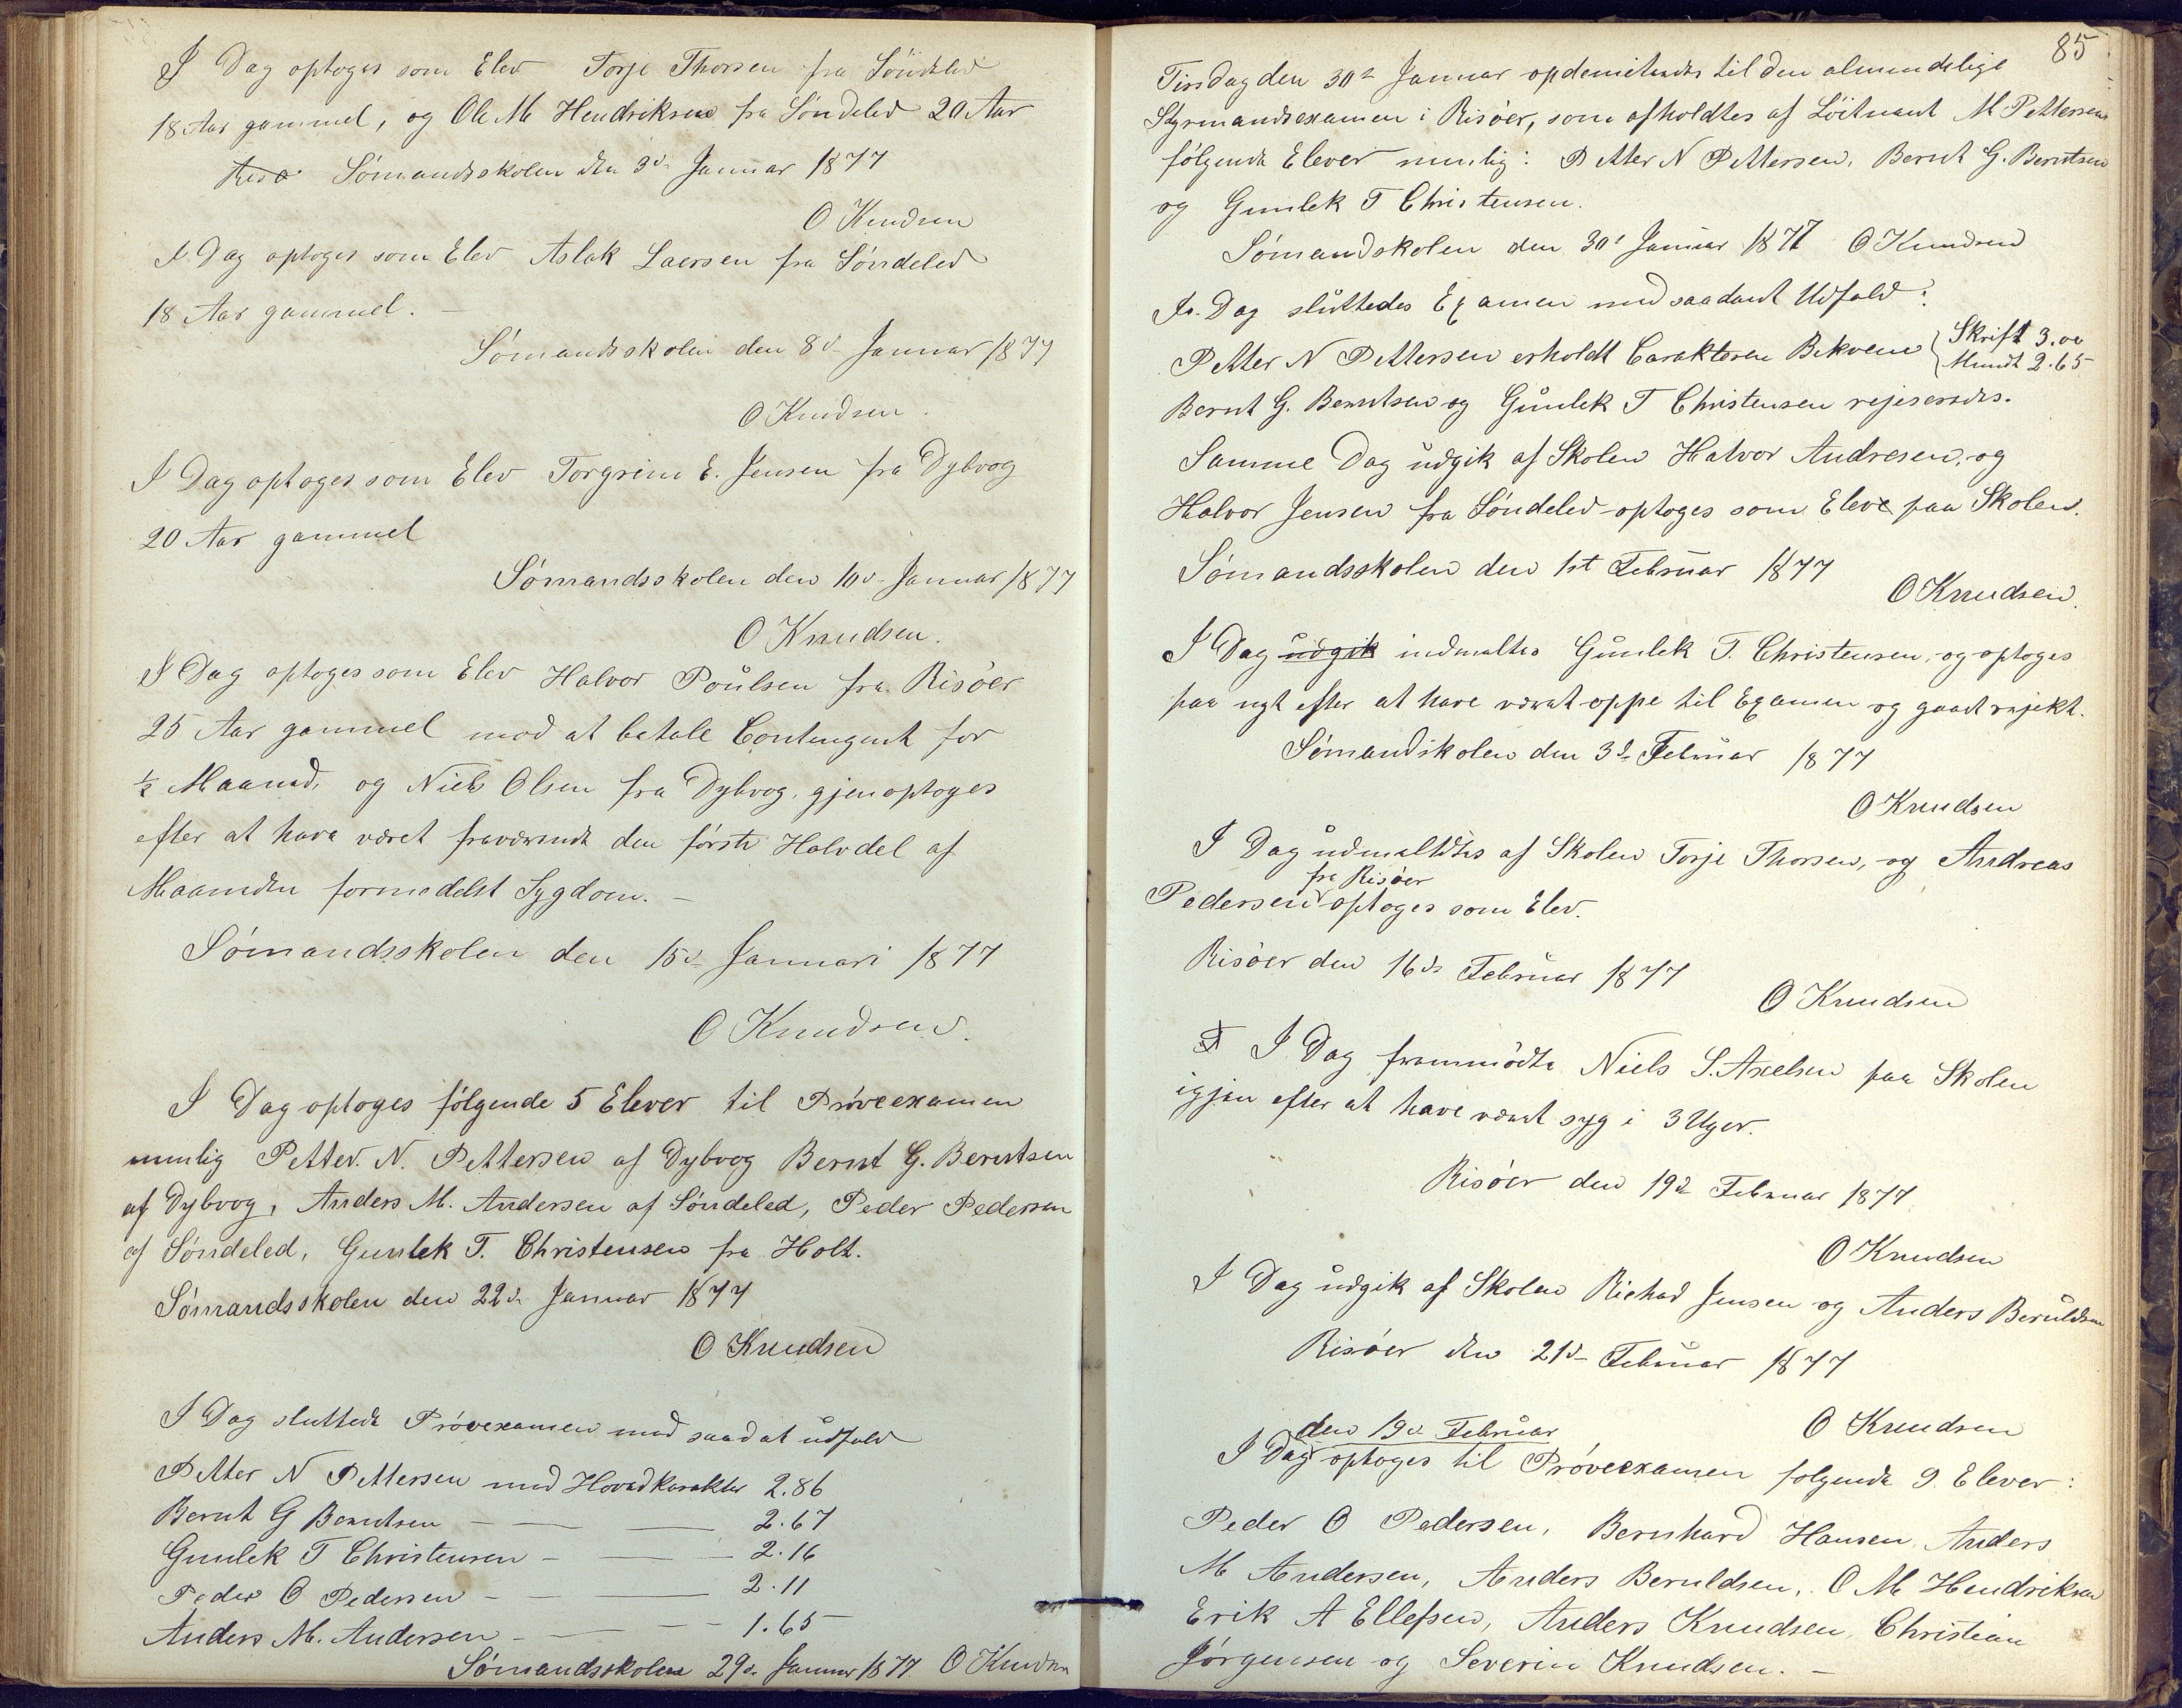 I Dag optoges som Elev Torje Thorsen fra Söndeled
18 Aar gammel, og Ole M Hendriksen fra Söndeled 20 Aar
Sömandsskolen den 3d Januar 1877
O Knudsen
I Dag optoges som Elev Aslak Laersen fra Söndeled
18 Aar gammel. –
Sömandsskolen den 8d Januar 1877
O Knudsen.
I Dag optoges som Elev Torgrim E. Jensen fra Dybvog
20 Aar gammel
Sömandsskolen den 10d Januar 1877
O Knudsen.
I Dag optoges som Elev Halvor Poulsen fra Risöer
25 Aar gammel mod at betale Contengent for
½ Maaned, og Niels Olsen fra Dybvog, gjenoptoges
efter at have været fraværende den förste Halvdel af
Maaneden formedelst Sygdom. –
Sömandsskolen den 15d Januari 1877
O Knudsen.
I Dag optoges fölgende 5 Elever til Pröveexamen
nemlig Petter. N. Pettersen af Dybvog Bernt G. Berntsen
af Dybvog, Anders M. Andersen af Söndeled, Peder Pedersen
af Söndeled, Gunlek T. Christensen fra Holt.
Sömandsskolen den 22d Januar 1877
O Knudsen
I Dag sluttede Prövexamen med saadat udfald
Petter N Pettersen med Hovedkarakter 2.86
Bernt G Berntsen – — — 2.67
Gunlek T Christensen – — — 2.16
Peder O Pedersen – — — 2.11
Anders M. Andersen – — — 1.65
Sömandsskolen 29d Januar 1877 O Knudsen
85
Tirsdag den 30t Januar opdemiteredes til den almindelige
Styrmandsexamen i Risöer, som afholdtes af Löitnant M Pettersen
fölgende Elever nemlig: Petter N Pettersen, Bernt G. Berntsen
og Gunlek T Christensen.
Sömandskolen den 30t Januar 1877 O Knudsen
I Dag sluttedes Examen med saadant Udfald:
Petter N Pettersen erholdt Carakteren Bekvem { Skrift 3.00
Mundt 2.65
Bernt G. Berntsen og Gunlek T Christensen rejeseredes.
Samme Dag udgik af Skolen Halvor Andresen, og
Halvor Jensen fra Söndeled optoges som Eleve paa Skolen.
Sömandsskolen den 1st Februar 1877
O Knudsen.
I Dag udgik indmeltes Gunlek T. Christensen, og optoges
paa nyt efter at have været oppe til Examen og gaaet rejekt.
Sömandskolen den 3d Februar 1877
O Knudsen
I Dag udmeltdtes af Skolen Torje Thorsen, og Andreas
fra Risöer
Pedersen optoges som Elev.
Risöer den 16d Februar 1877
O Knudsen
I Dag fremmödte Niels S. Axelsen paa Skolen
igjen efter at have været syg i 3 Uger.
Risöer den 19d Februar 1877
O Knudsen
I Dag udgik af Skolen Richad Jensen og Anders Beruldsen
Risöer den 21d Februar 1877
O Knudsen
den 19d Februar
I Dag optoges til Pröveexamen fölgende 9 Elever:
Peder O Pedersen, Bernhard Hansen, Anders
M Andersen, Anders Beruldsen, O M Hendriksen
Erik A Ellefsen, Anders Knudsen, Christian
Jörgensen og Severin Knudsen. –